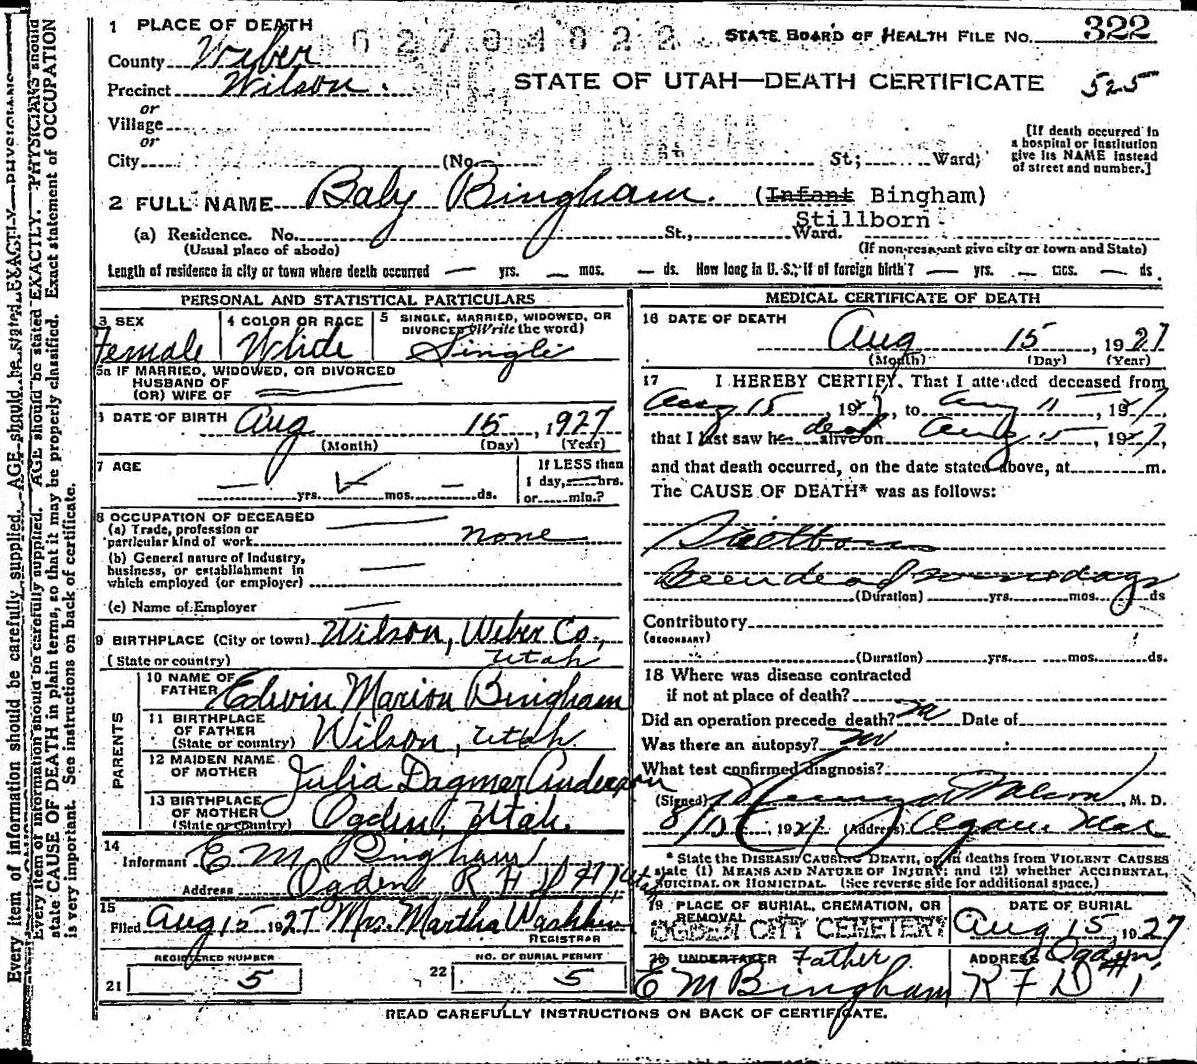 1 PLACE OF DEATH
STATE BOARD OF HEALTH FILE No. 322
County Weber
Precinct Wilson.
STATE OF UTAH—DEATH CERTIFICATE 525
or
Village
or
City (No. St; Ward)
[If death occurred in a hospital or institution give its NAME instead of street and number.]
2 FULL NAME Baby Bingham. (Infant Bingham)
Stillborn
(a) Residence. No. St., Ward.
(Usual place of abode) (If non-resident give city or town and State)
Length of residence in city or town where death occurred — yrs. — mos. — ds. How long in U. S., if of foreign birth? — yrs. — mos. — ds
PERSONAL AND STATISTICAL PARTICULARS
3 SEX
Female
4 COLOR OR RACE
White
5 SINGLE, MARRIED, WIDOWED, OR DIVORCED (Write the word)
Single
5a IF MARRIED, WIDOWED, OR DIVORCED
HUSBAND OF
(OR) WIFE OF
6 DATE OF BIRTH Aug 15, 1927
(Month) (Day) (Year)
7 AGE
— yrs. mos. — ds.
If LESS than
1 day, hrs.
or min.?
8 OCCUPATION OF DECEASED
(a) Trade, profession or
particular kind of work none
(b) General nature of Industry,
business, or establishment in
which employed (or employer)
(c) Name of Employer —
9 BIRTHPLACE (City or town) Wilson, Weber Co.,
(State or country) Utah
PARENTS
10 NAME OF
FATHER Edwin Marion Bingham
11 BIRTHPLACE
OF FATHER
(State or country) Wilson, Utah.
12 MAIDEN NAME
OF MOTHER Julia Dagmar Anderson
13 BIRTHPLACE
OF MOTHER
(State or country) Ogden, Utah.
14
Informant E M Bingham
Address Ogden R F D #1
15
Filed Aug 15 1927 Mrs. Martha Washburn
REGISTRAR
REGISTERED NUMBER
21 5
NO. OF BURIAL PERMIT
22 5
MEDICAL CERTIFICATE OF DEATH
16 DATE OF DEATH
Aug 15, 1927
(Month) (Day) (Year)
17 I HEREBY CERTIFY, That I attended deceased from
Aug 15 1927, to Aug 1927,
that I last saw he dead alive on Aug 15, 1927,
and that death occurred, on the date stated above, at m.
The CAUSE OF DEATH* was as follows:
Stillborn
Been dead some days
(Duration) yrs. mos. ds
Contributory
(SECONDARY)
(Duration) yrs. mos. ds.
18 Where was disease contracted
if not at place of death?
Did an operation precede death? no Date of
Was there an autopsy? no
What test confirmed diagnosis?
(Signed) , M. D.
8/15, 1927 (Address)
* State the DISEASE CAUSING DEATH, or in deaths from VIOLENT CAUSES
state (1) MEANS AND NATURE OF INJURY; and (2) whether ACCIDENTAL,
SUICIDAL OR HOMICIDAL. (See reverse side for additional space.)
19 PLACE OF BURIAL, CREMATION, OR
REMOVAL
OGDEN CITY CEMETERY
DATE OF BURIAL
Aug 15, 1927
20 UNDERTAKER Father
E M Bingham
ADDRESS Ogden
R F D #1
READ CAREFULLY INSTRUCTIONS ON BACK OF CERTIFICATE.
Every item of information should be carefully supplied. AGE should be stated EXACTLY. PHYSICIANS should
state CAUSE OF DEATH in plain terms, so that it may be properly classified. Exact statement of OCCUPATION
is very important. See instructions on back of certificate.